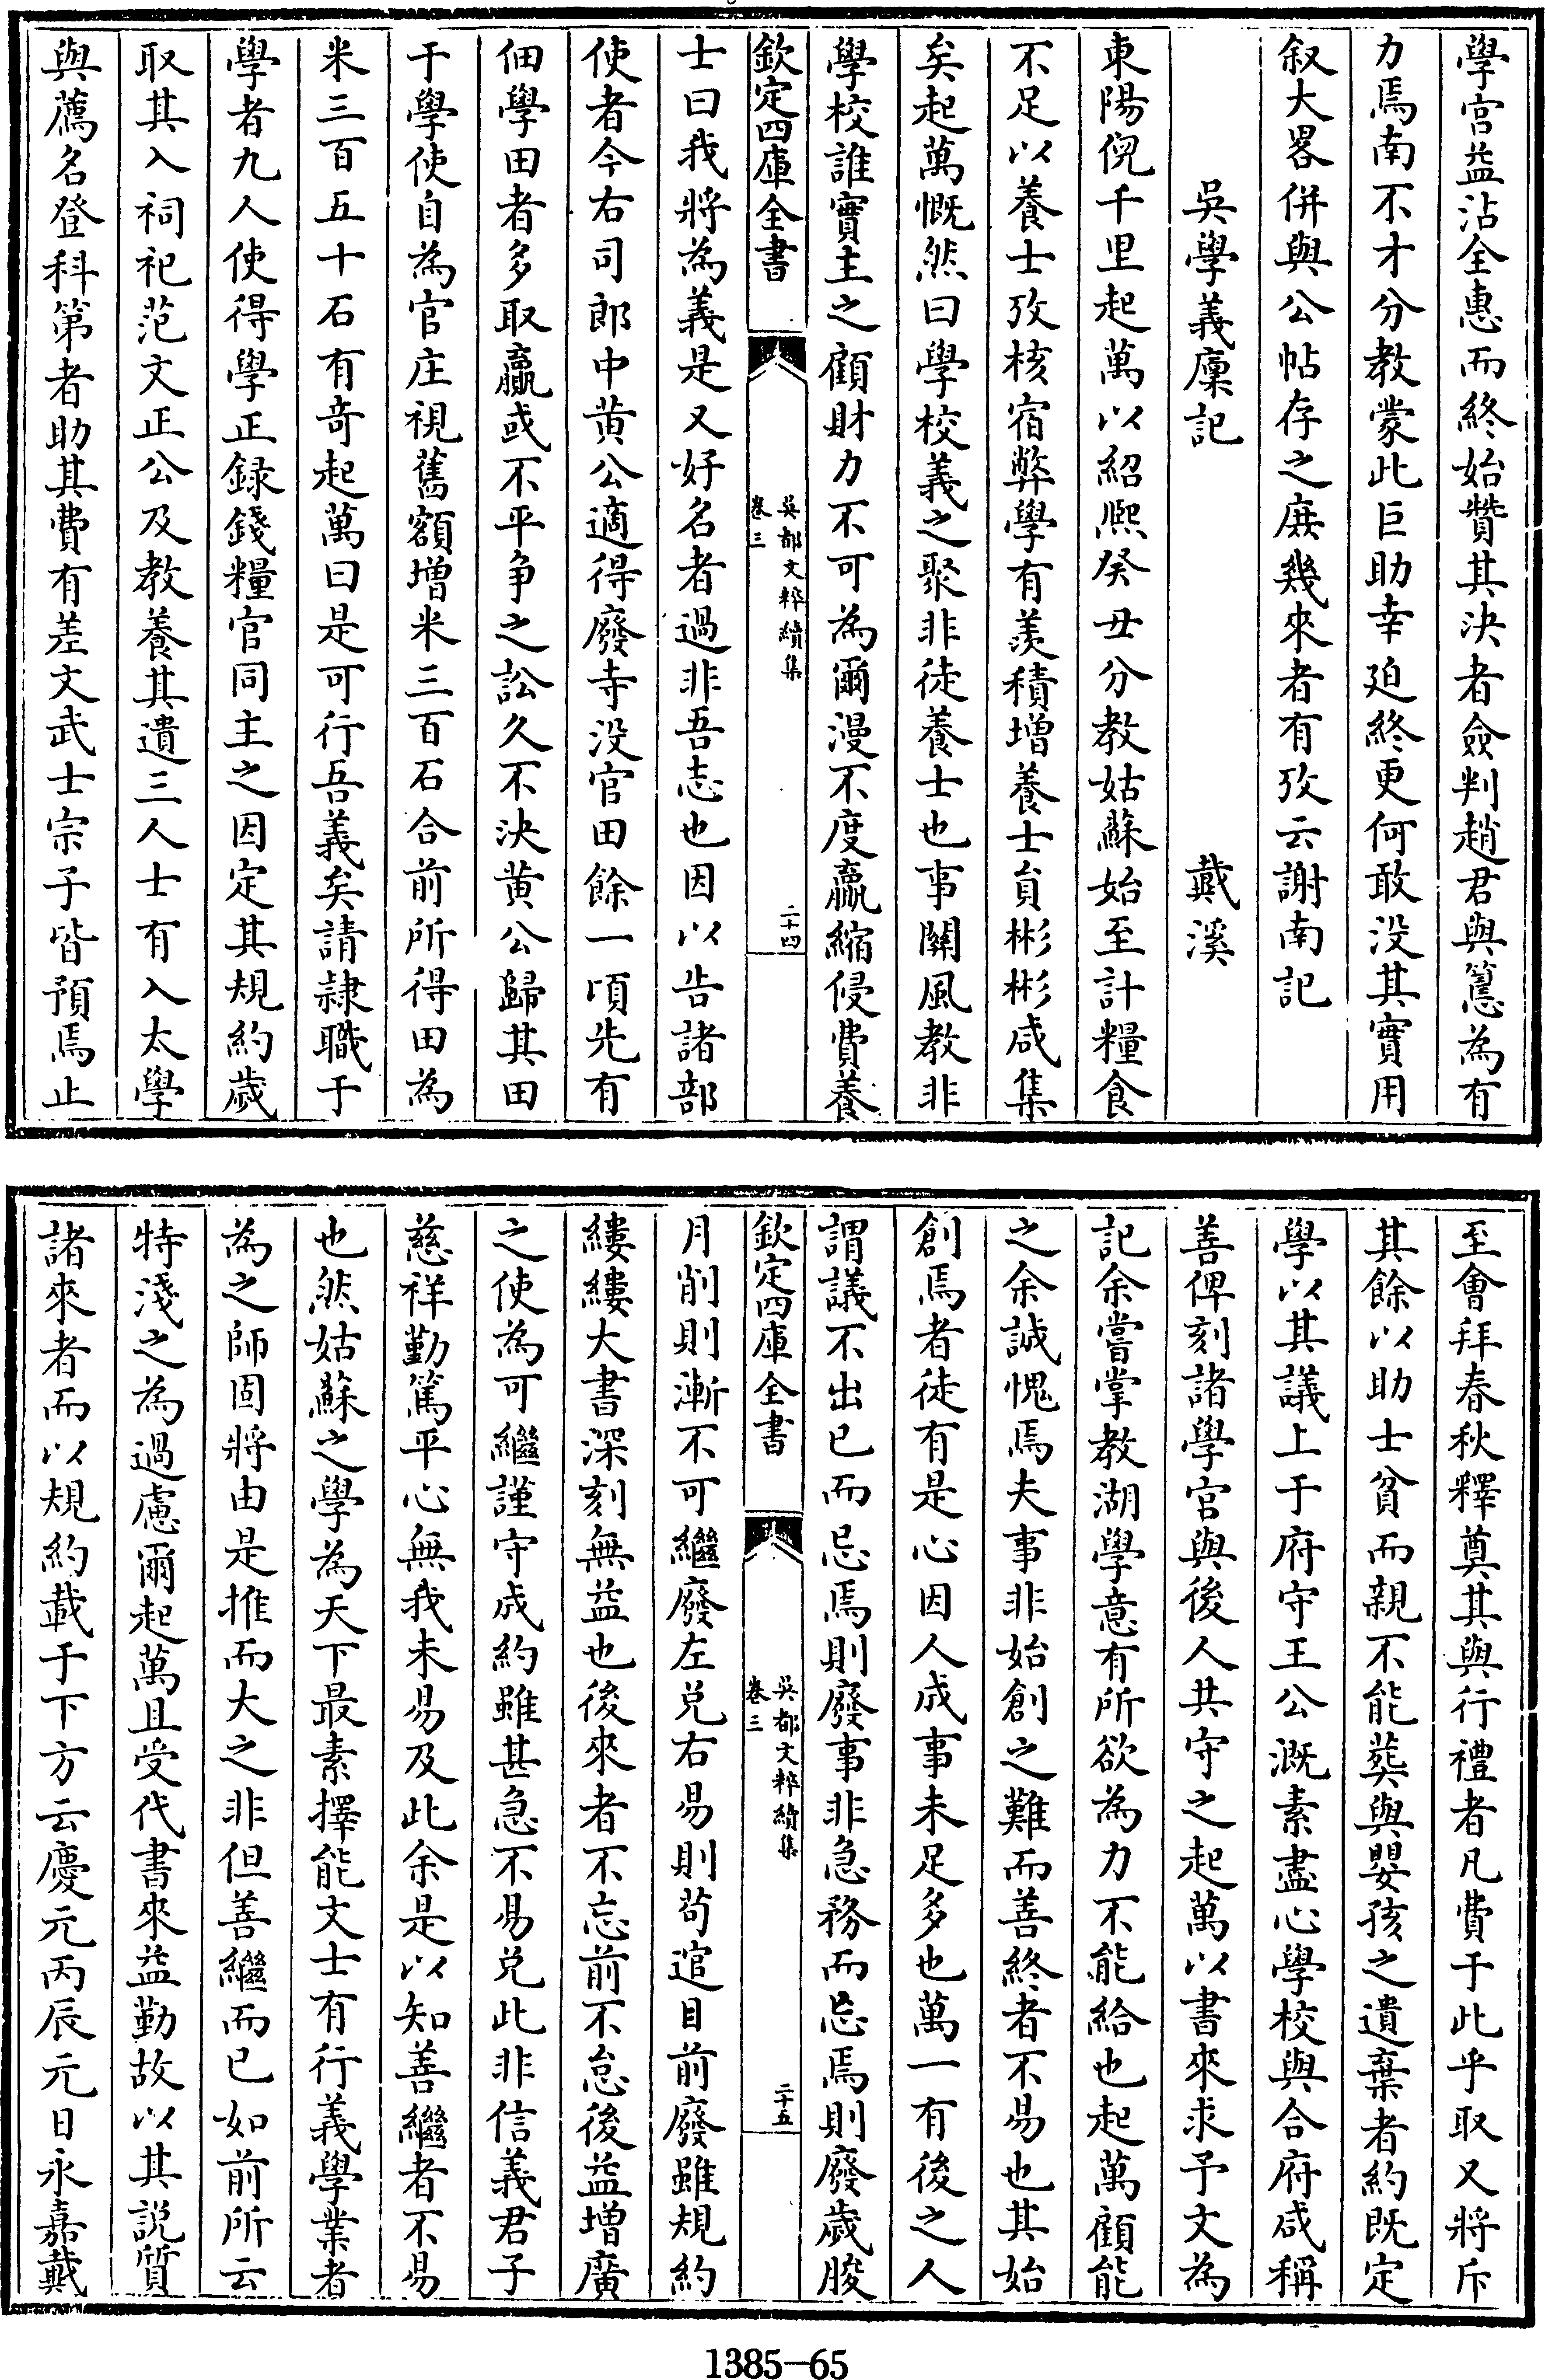 學宫益沾全惠而終始贊其決者僉判趙君與䕫為有
力焉南不才分教蒙此巨助幸廹終更何敢没其實用
叙大畧併與公帖存之庶幾來者有攷云謝南記
吳學義廩記 戴溪
東陽倪千里起萬以紹熙癸丑分教姑蘇始至計糧食
不足以養士攷核宿弊學有羡積增養士貟彬彬咸集
矣起萬慨然曰學校義之聚非徒養士也事關風教非
學校誰實主之顧財力不可為爾漫不度贏縮侵費養
欽定四庫全書
吳都文粹續集
卷三
二十四
士曰我將為義是又好名者過非吾志也因以告諸部
使者今右司郎中黄公適得廢寺没官田餘一頃先有
佃學田者多取贏或不平争之訟久不決黄公歸其田
于學使自為官庄視舊額增米三百石合前所得田為
米三百五十石有奇起萬曰是可行吾義矣請隷職于
學者九人使得學正録錢糧官同主之因定其規約歲
取其入祠祀范文正公及教養其遺三人士有入太學
與薦名登科第者助其費有差文武士宗子皆預焉止
至會拜春秋釋奠其與行禮者凡費于此乎取又將斥
其餘以助士貧而親不能葬與嬰孩之遺棄者約既定
學以其議上于府守王公溉素盡心學校與合府咸稱
善俾刻諸學官與後人共守之起萬以書來求予文為
記余嘗掌教湖學意有所欲為力不能給也起萬顧能
之余誠愧焉夫事非始創之難而善終者不易也其始
創焉者徒有是心因人成事未足多也萬一有後之人
謂議不出已而忌焉則廢事非急務而忘焉則廢歲朘
欽定四庫全書
吳都文粹續集
卷三
二十五
月削則漸不可繼廢左兑右易則苟逭目前廢雖規約
縷縷大書深刻無益也後來者不忘前不怠後益增廣
之使為可繼謹守成約雖甚急不易兑此非信義君子
慈祥勤篤平心無我未易及此余是以知善繼者不易
也然姑蘇之學為天下最素擇能文士有行義學業者
為之師固將由是推而大之非但善繼而已如前所云
特淺之為過慮爾起萬且受代書來益勤故以其説質
諸來者而以規約載于下方云慶元丙辰元日永嘉戴
1385-65